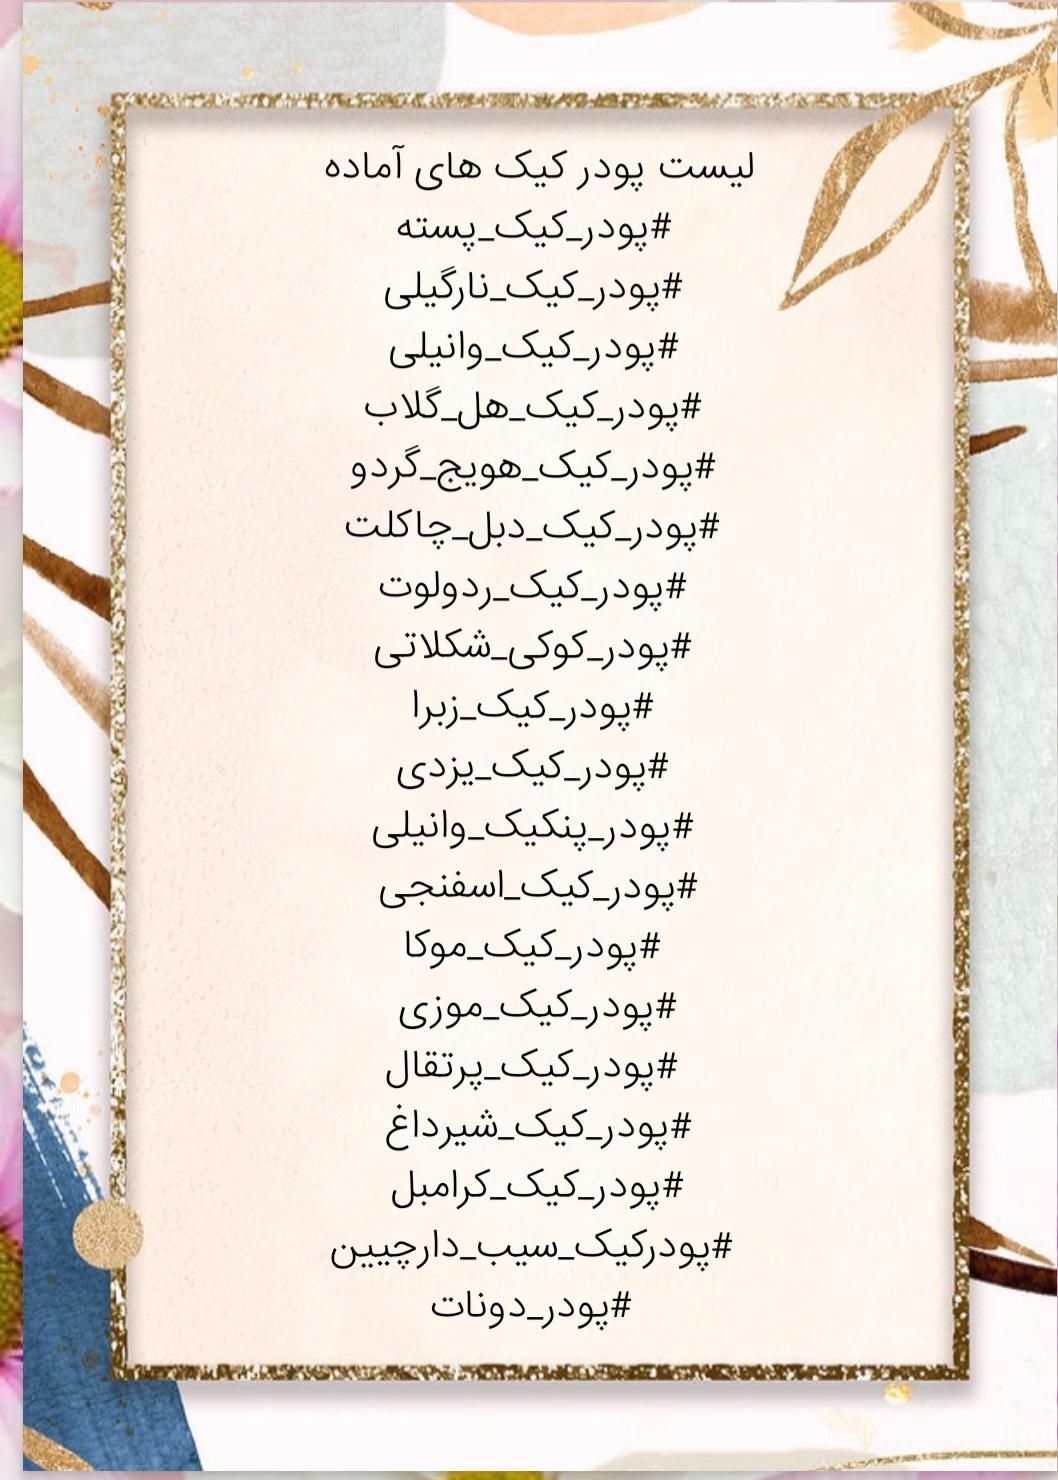 لیست پودر کیک های آماده
#پودر_کیک_پسته
#پودر_کیک_نارگیلی
#پودر_کیک_وانیلی
#پودر_کیک_هل_گلاب
#پودر_کیک_هویج_گردو
#پودر_کیک_دبل_چاکلت
#پودر_کیک_ردولوت
#پودر_کوکی_شکلاتی
#پودر_کیک_زبرا
#پودر_کیک_یزدی
#پودر_پنکیک_وانیلی
#پودر_کیک_اسفنجی
#پودر_کیک_موکا
#پودر_کیک_موزی
#پودر_کیک_پرتقال
#پودر_کیک_شیرداغ
#پودر_کیک_کرامبل
#پودرکیک_سیب_دارچیین
#پودر_دونات